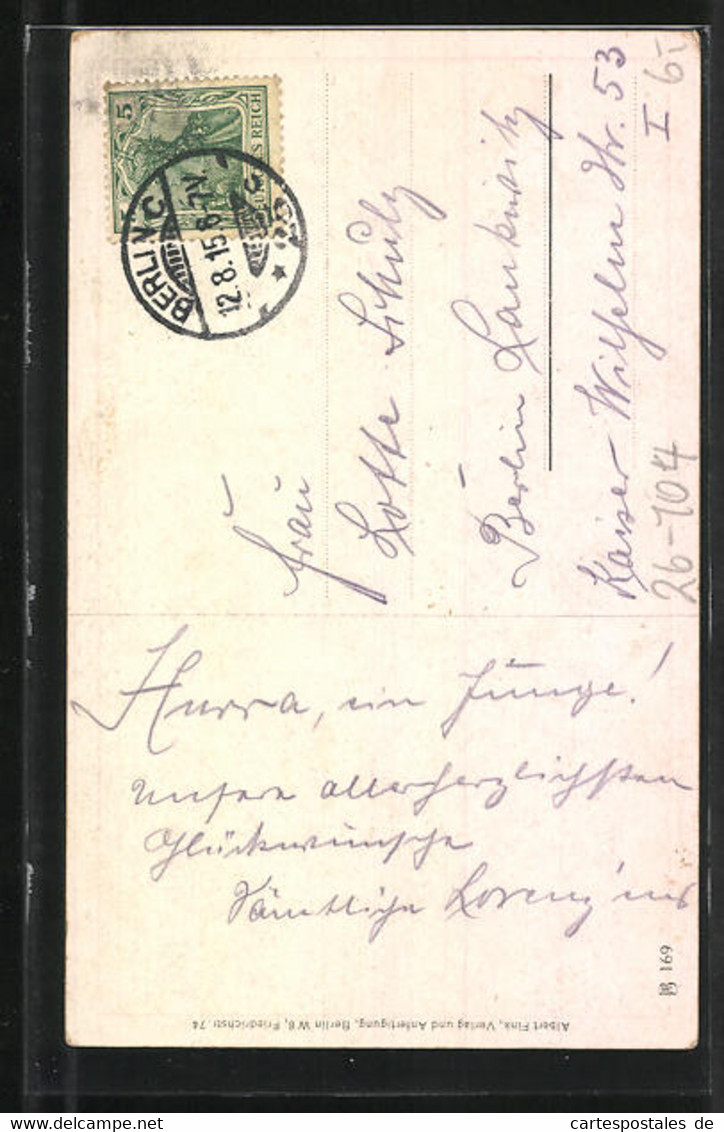 5
DEUTSCHES REICH
BERLIN C
12.8.15.6-7N.
Frau
Lotte Schulz
Berlin Lankwitz
Kaiser Wilhelm Str. 53
I
26-104
Hurra, ein Junge!
Unsere allerherzlichsten
Glückwünsche
Sämtliche Lorenz'ens
169
Albert Fink, Verlag und Anfertigung, Berlin W 8, Friedrichstr. 74
www.delcampe.net
cartespostales_de